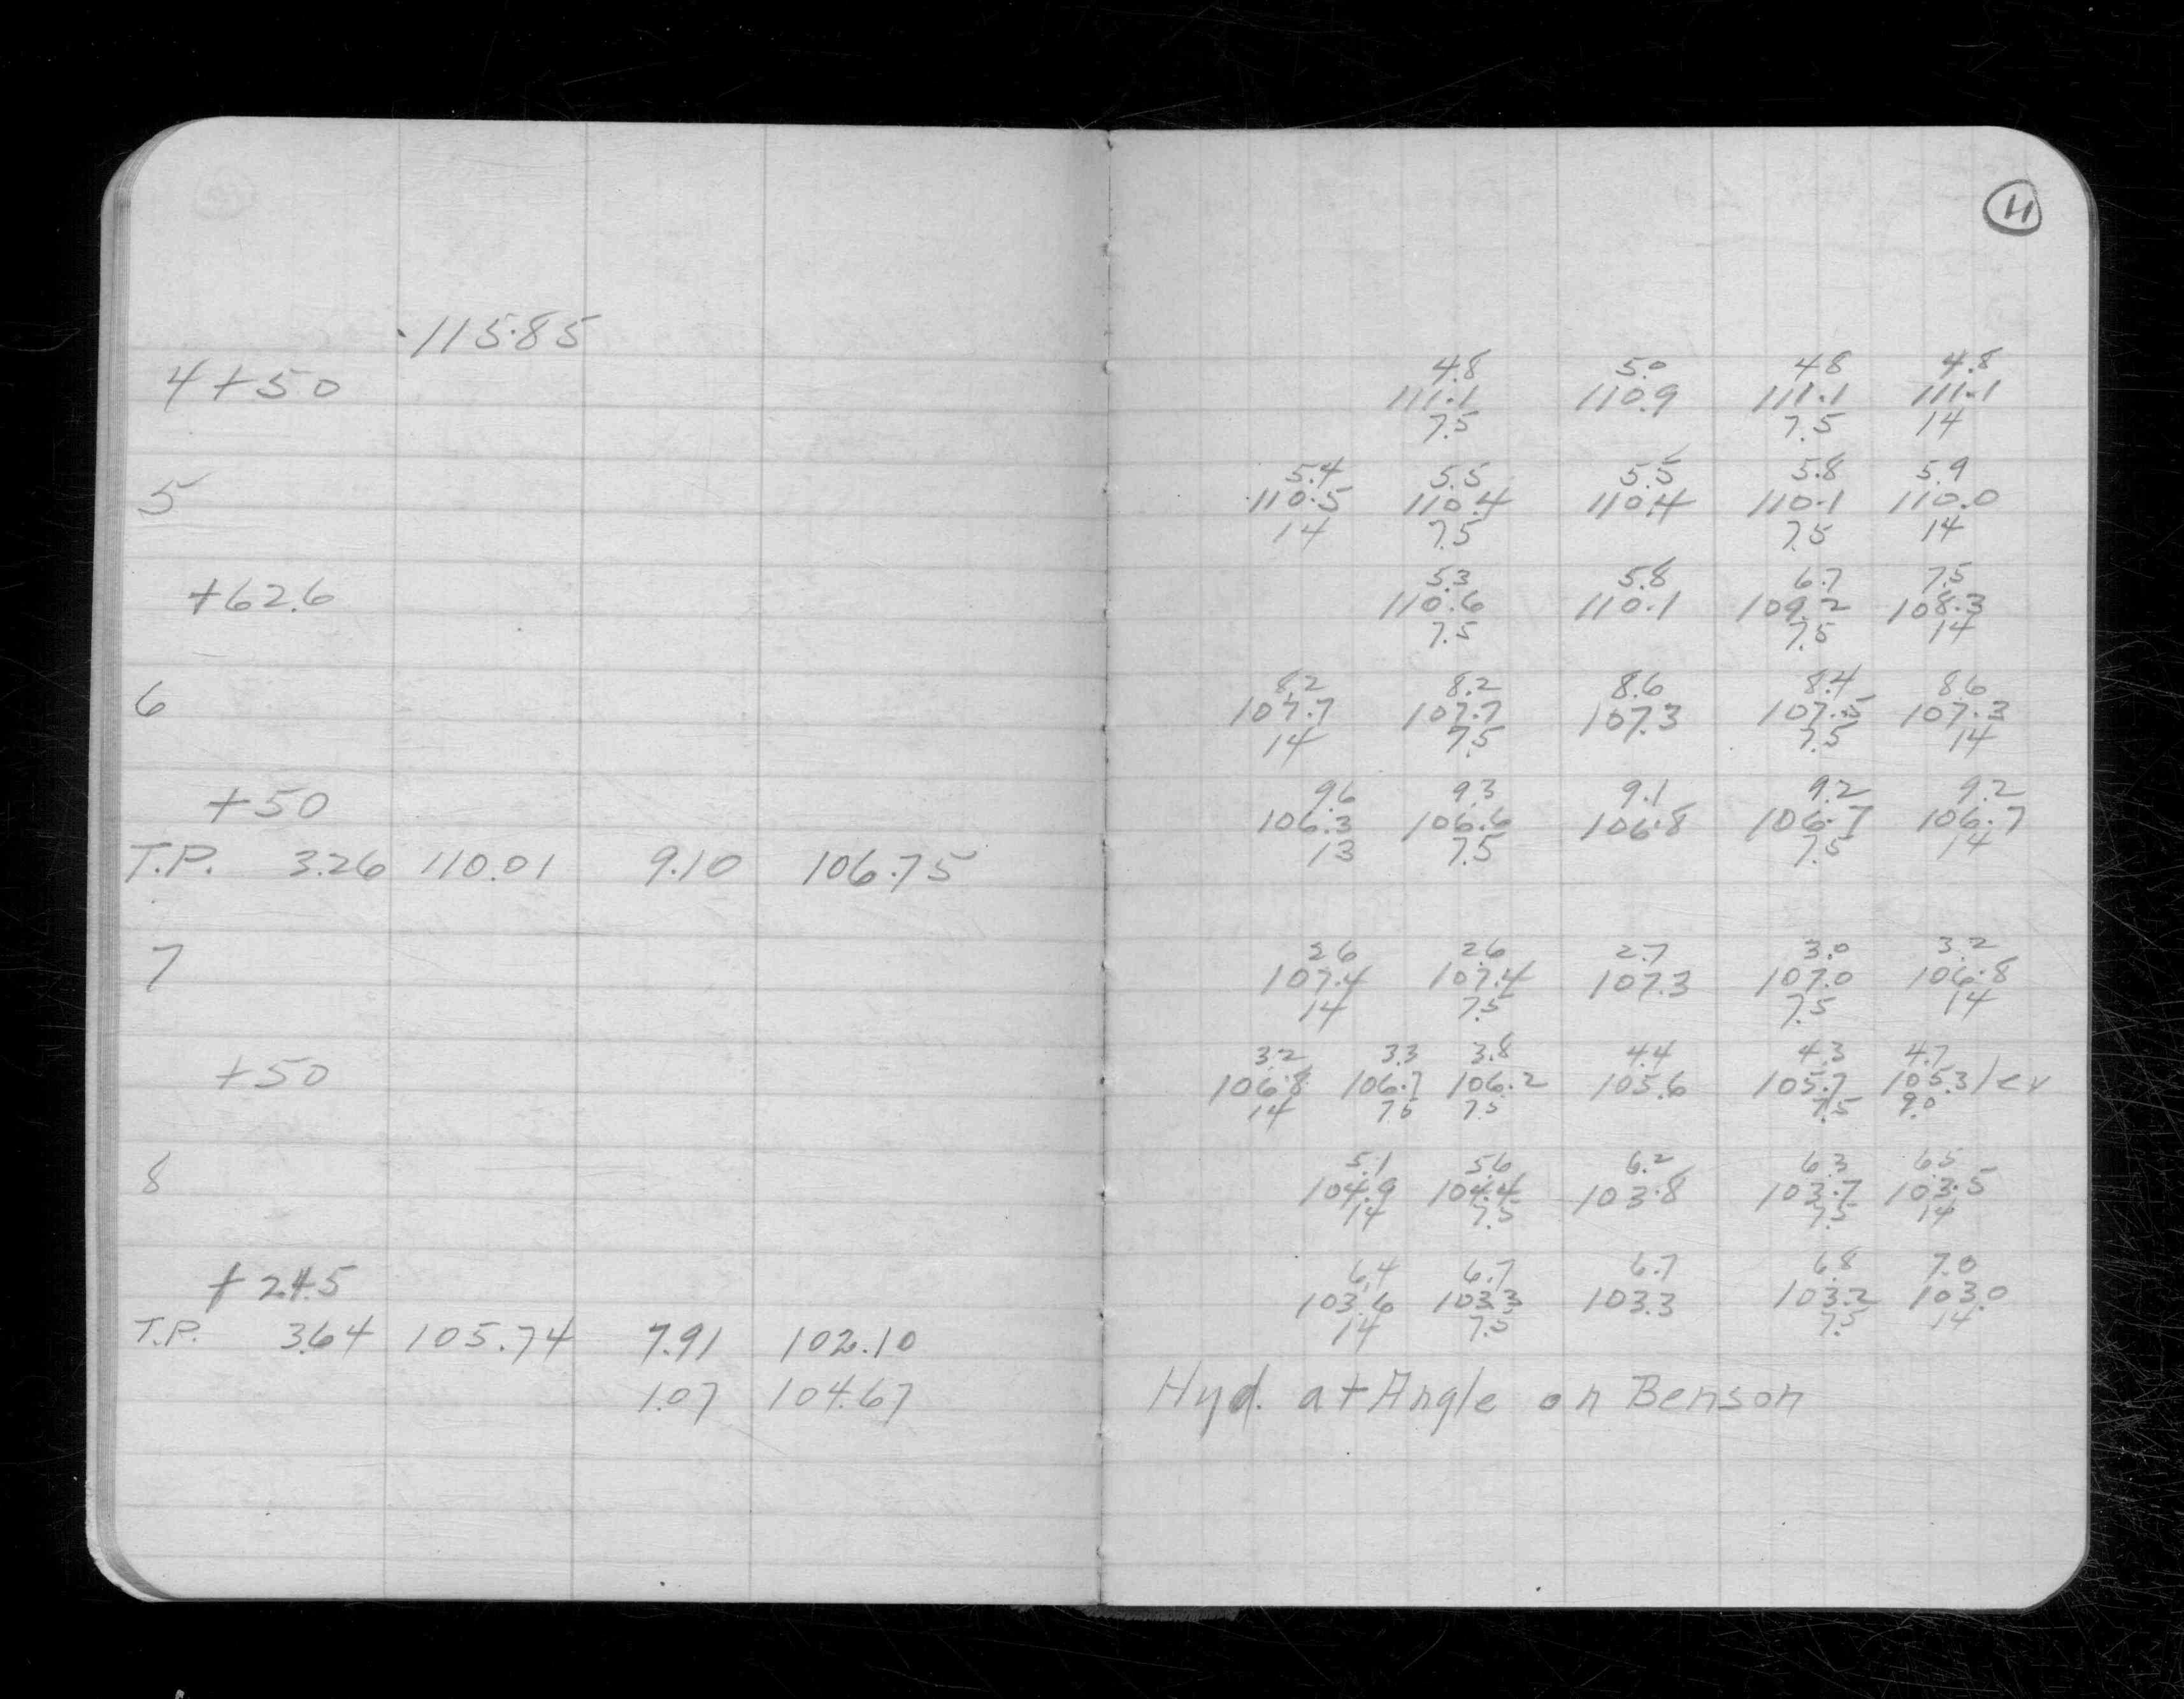 11
115.85
4+50
4.8 5.0 4.8 4.8
111.1 110.9 111.1 111.1
7.5 7.5 14
5
5.4 5.5 5.5 5.8 5.9
110.5 110.4 110.4 110.1 110.0
14 7.5 7.5 14
+62.6
5.3 5.8 6.7 7.5
110.6 110.1 109.2 108.3
7.5 7.5 14
6
8.2 8.2 8.6 8.4 8.6
107.7 107.7 107.3 107.5 107.3
14 7.5 7.5 14
+50
9.6 9.3 9.1 9.2 9.2
106.3 106.6 106.8 106.7 106.7
13 7.5 7.5 14
T.P. 3.26 110.01 9.10 106.75
7
2.6 2.6 2.7 3.0 3.2
107.4 107.4 107.3 107.0 106.8
14 7.5 7.5 14
+50
3.2 3.3 3.8 4.4 4.3 4.7
106.8 106.7 106.2 105.6 105.7 105.3 lev
14 7.5 7.5 7.5 9.0
8
5.1 5.6 6.2 6.3 6.5
104.9 104.4 103.8 103.7 103.5
14 7.5 7.5 14
6.4 6.7 6.7 6.8 7.0
103.6 103.3 103.3 103.2 103.0
14 7.5 7.5 14
T.P. 3.64 105.74 7.91 102.10
1.07 104.67 Hyd. at Angle on Benson